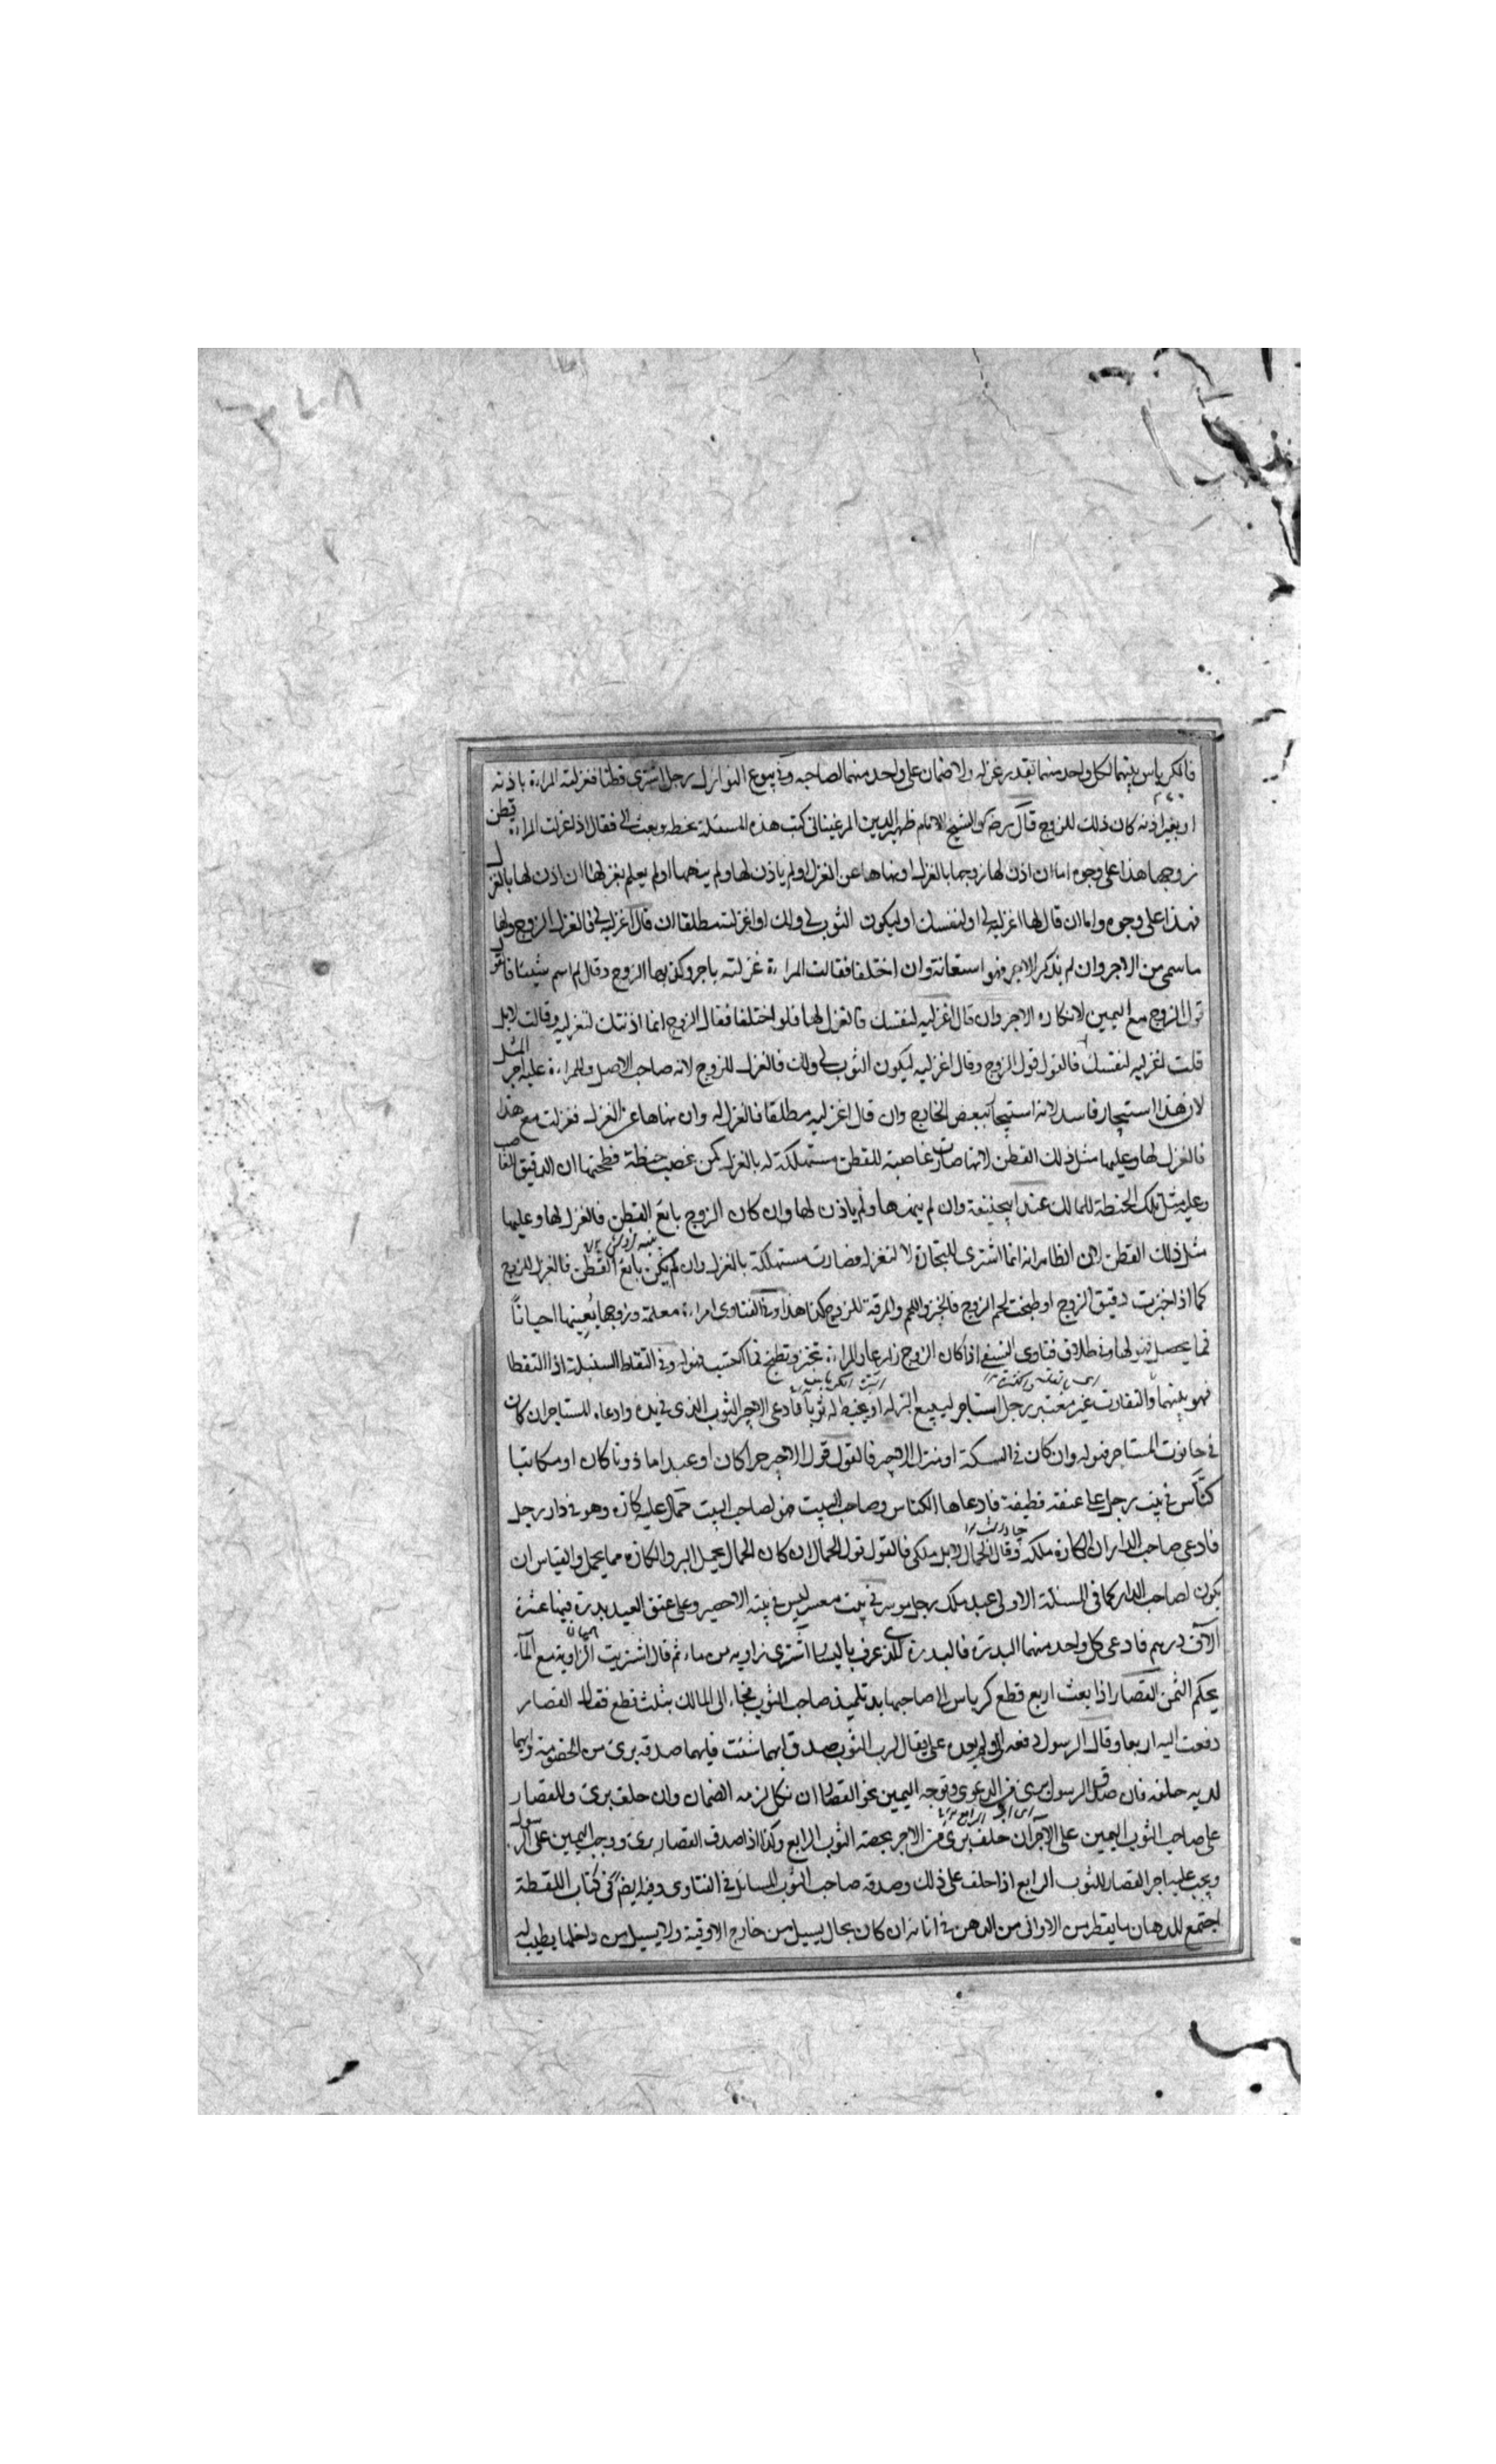 فالكرباس بينهما لكل واحد منهما بقدر غزله ولا ضمان على واحد منهما لصاحبه وفي بيوع النوازل رجل اشترى قطنا فغزلته المراءة باذنه
او بغير اذنه كان ذلك للزوج قال رضه كو الشيخ الامام ظهير الدين المرغيناني كتب هذه المسئلة بخطه وبعث الي فقال اذا غزلت المراءة قطن
زوجها هذا على وجوه اما ان اذن لها زوجها بالغزل او نهاها عن الغزل او لم ياذن لها ولم ينهها او لم يعلم بغزلها ان اذن لها بالغزل
فهذا على وجوه واما ان قال لها اغزليه لي او لنفسك او ليكون الثوب لي ولك او اغزليه مطلقا ان قال اغزليه لي فالغزل للزوج ولها
ما سمى من الاجر وان لم يذكر الاجر فهو استعانة وان اختلفا فقالت المراءة غزلته باجر وكذبها الزوج وقال لم اسم شيئا فالقول
قول الزوج مع اليمين لانكاره الاجر وان قال اغزليه لنفسك فالغزل لها فلو اختلفا فقال الزوج انما اذنتك لتغزليه وقالت لا بل
قلت اغزليه لنفسك فالقول قول الزوج وقال اغزليه ليكون الثوب لي ولك فالغزل للزوج لانه صاحب الاصل وللمراءة عليه اجر المثل
لان هذا استيجار فاسد لانه استيجار ببعض الخارج وان قال اغزليه مطلقا فالغزل له وان نهاها عن الغزل فغزلت مع هذا
فالغزل لها وعليها مثل ذلك القطن لانها صارت غاصبة للقطن مستهلكة له بالغزل كمن غصب حنطة فطحنها ان الدقيق للغاصب
وعليه مثل تلك الحنطة للمالك عند ابيحنيفة وان لم ينهها ولم ياذن لها وان كان الزوج بائع القطن فالغزل لها وعليها
مثل ذلك القطن لان الظاهر انه انما اشترى للتجارة لا لتغزله فصارت مستهلكة بالغزل وان لم يكن بائع القطن فالغزل للزوج
كما اذا خبزت دقيق الزوج او طبخت لحم الزوج فالخبز واللحم والمرقة للزوج هكذا وفي الفتاوى امراءة معلمة وزوجها يعينها احيانا
فما يحصل فهو لها وفي طلاق فتاوى النسفي اذا كان الزوج زارعا والمراءة تخبز وتطبخ فما اكتسب فهو له وفي التقاط السنبلة اذا التقطا
فهو بينهما والتفاوت غير معتبر رجل استاجر ليبيع البز له او يخيط له ثوبا فادعى الاجير الثوب الذي في يده وادعاه المستاجر ان كان
في حانوت المستاجر فهو له وان كان في السكة او منزل الاجير فالقول قول الاجير حرا كان او عبدا ماذونا كان او مكاتبا
كناس في بيت رجل على عنقه قطيفة فادعاها الكناس وصاحب البيت فهو لصاحب البيت حمال عليه كازه وهو في دار رجل
فادعى صاحب الدار ان الكازه ملكه وقال الحمال لا بل ملكي فالقول قول الحمال ان كان الحمال يحمل البز والكازه مما يحمل والقياس ان
يكون لصاحب الدار كما في المسئلة الاولى عبد ملك رجل موسر في بيت معسر ليس في بيته الا حصير وعلى عنق العبد بدرة فيها عشرة
الاف درهم فادعى كل واحد منهما البدرة فالبدرة للذي عرف باليسار اشترى زاوية من ماء ثم قال اشتريت الزاوية مع الماء
يحكم الثمن القصار اذا بعث اربع قطع كرباس الى صاحبها بيد تلميذ صاحب الثوب فجاء الى المالك بثلث قطع فقال القصار
دفعت اليه اربعا وقال الرسول دفعه الي ولم يعده علي يقال لرب الثوب صدق ايهما شئت فايهما صدقه برئ من الخصومة وايهما
كذبه حلفه فان صدق الرسول برئ من الدعوى وتوجه اليمين نحو القصار ان نكل لزمه الضمان وان حلف برئ وللقصار
على صاحب الثوب اليمين على الاجر ان حلف برئ من الاجر بحصة الثوب الرابع وكذا اذا صدق القصار برئ ووجب اليمين على الرسول
ويجب عليه اجر القصار للثوب الرابع اذا حلف على ذلك وصدقه صاحب الثوب المسائل في الفتاوى وفيه ايضا في كتاب اللقطة
اجتمع للدهان ما يقطر من الاواني من الدهن في اناءه ان كان بحال يسيل من خارج الاوقية ولا يسيل من داخلها يطيب له